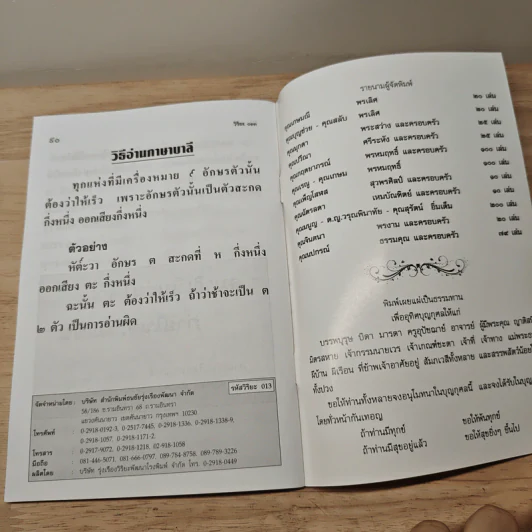 ๕๐
วิริยะ ๐๑๓
วิธีอ่านภาษาบาลี
ทุกแห่งที่มีเครื่องหมาย ๙ อักษรตัวนั้น
ต้องว่าให้เร็ว เพราะอักษรตัวนั้นเป็นตัวสะกด
กึ่งหนึ่ง ออกเสียงกึ่งหนึ่ง
ตัวอย่าง
หัต๎ะวา อักษร ต สะกดที่ ห กึ่งหนึ่ง
ออกเสียง ตะ กึ่งหนึ่ง
ฉะนั้น ตะ ต้องว่าให้เร็ว ถ้าว่าช้าจะเป็น ต
๒ ตัว เป็นการอ่านผิด
รหัสวิริยะ 013
จัดจำหน่ายโดย : บริษัท สำนักพิมพ์ธนธัชรุ่งเรืองพัฒนา จำกัด
58/166 ถ.รามอินทรา 68 ถ.รามอินทรา
แขวงคันนายาว เขตคันนายาว กรุงเทพฯ 10230
โทรศัพท์ : 0-2918-0192-3, 0-2517-7445, 0-2918-1336, 0-2918-1338-9,
0-2918-1057, 0-2918-1171-2,
โทรสาร : 0-2917-9072, 0-2918-1218, 02-918-1058
มือถือ : 081-446-5071, 081-666-0797, 089-784-8758, 089-789-3226
ผลิตโดย : บริษัท รุ่งเรืองวิริยะพัฒนาโรงพิมพ์ จำกัด โทร. 0-2918-0449
รายนามผู้จัดพิมพ์
พรเลิศ ๒๐ เล่ม
คุณบุญช่วย - คุณสลับ พรเลิศ ๒๐ เล่ม
คุณสุกดา พรสว่าง และครอบครัว ๒๕ เล่ม
คุณปรีณา ศรีระหัง และครอบครัว ๒๕ เล่ม
คุณกฤตยาภรณ์ พรหมฤทธิ์ และครอบครัว ๑๐๐ เล่ม
คุณเจรญ - คุณเกษม พรหมฤทธิ์ ๑๐๐ เล่ม
คุณเพ็ญโสภส สุวพรศิลป์ และครอบครัว ๑๐ เล่ม
คุณฉัตรลดา เหมบัณฑิตย์ และครอบครัว ๑๐ เล่ม
คุณมนูญ - ด.ญ.วรุณพิมาทัย - คุณสุรัตน์ ยิ้มเต็ม ๒๐๐ เล่ม
คุณจินตนา พรงาม และครอบครัว ๒๐ เล่ม
คุณนปกรณ์ ธรรมคุณ และครอบครัว ๗๕ เล่ม
พิมพ์เผยแผ่เป็นธรรมทาน
เพื่ออุทิศบุญกุศลให้แก่
บรรพบุรุษ บิดา มารดา ครูอุปัชฌาย์ อาจารย์ ผู้มีพระคุณ
มิตรสหาย เจ้ากรรมนายเวร เจ้าเกณฑ์ชะตา เจ้าที่ เจ้าทาง แม่พระธรณี
ผีบ้าน ผีเรือน ที่ข้าพเจ้าอาศัยอยู่ สัมภเวสีทั้งหลาย และสรรพสัตว์น้อย
ทั้งปวง
ขอให้ท่านทั้งหลายจงอนุโมทนาในบุญกุศลนี้ และจงได้รับในบุญ
โดยทั่วหน้ากันเทอญ
ถ้าท่านมีทุกข์ ขอให้พ้นทุกข์
ถ้าท่านมีสุขอยู่แล้ว ขอให้สุขยิ่งๆ ขึ้นไป